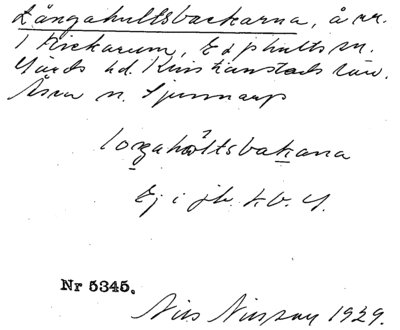 Långahultsbackarna, å rr.
i Kickarum, Edphults sn.
Gärds hd. Kristianstads län.
Åsar n. Spinnarp
longahooltsbakana
Ej i jb. k.b. Y.
Nr 5345.
Nils Nilsson 1929.